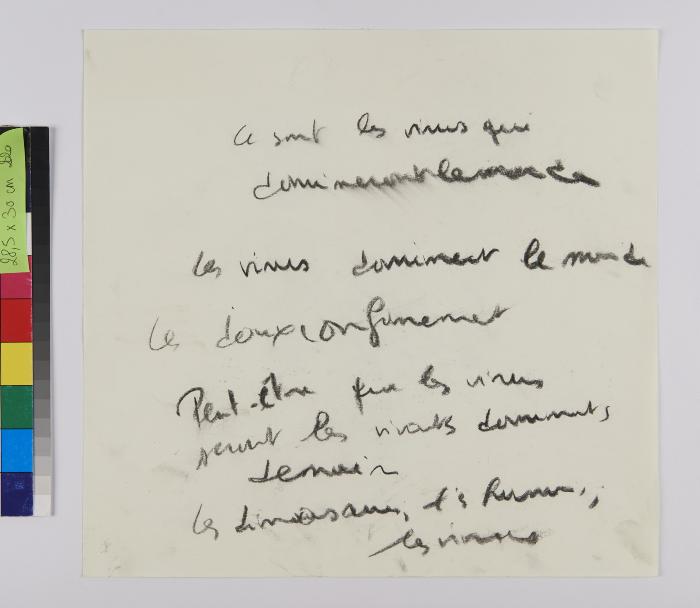 28,5 x 30 cm 2020
Ce sont les virus qui
domineront le monde
Les virus dominent le monde
Le doux confinement
Peut-être que les virus
seront les vivants dominants
demain
Les dinosaures, les humains,
les virus